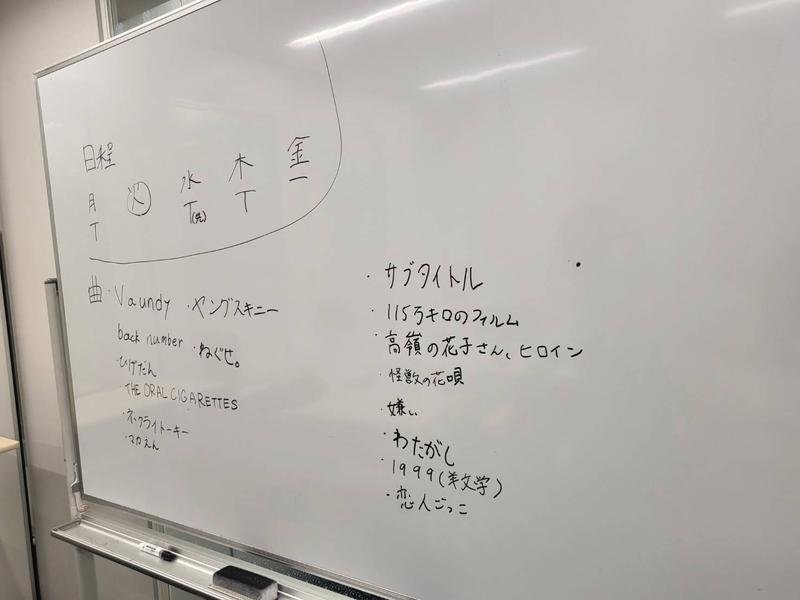 日程
月 火 水 木 金
T T(先) T ー
曲・Vaundy ・ヤングスキニー
・back number ・ねぐせ。
・ひげだん
・THE ORAL CIGARETTES
・ネクライトーキー
・マカえん
・サブタイトル
・115万キロのフィルム
・高嶺の花子さん、ヒロイン
・怪獣の花唄
・嫌い
・わたがし
・1999(羊文学)
・恋人ごっこ